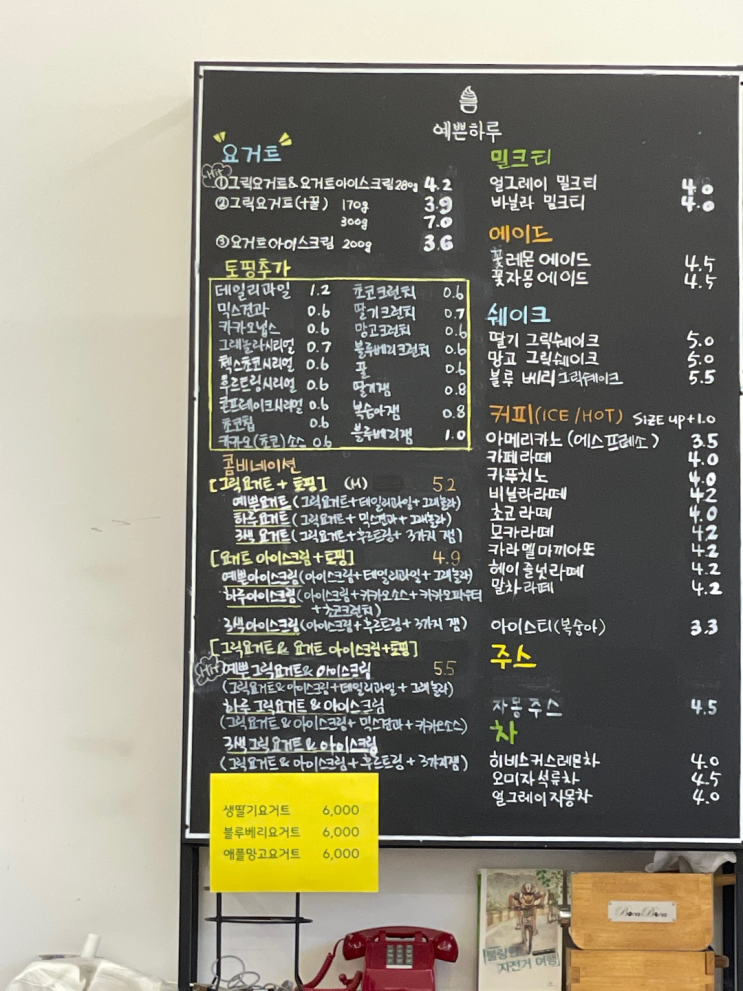 예쁜하루
요거트
Hit
①그릭요거트&요거트아이스크림 280g 4.2
②그릭요거트(+꿀) 170g 3.9
300g 7.0
③요거트아이스크림 200g 3.6
토핑추가
데일리과일 1.2
믹스견과 0.6
카카오닙스 0.6
그래놀라시리얼 0.7
첵스초코시리얼 0.6
후르트링시리얼 0.6
콘프레이크시리얼 0.6
초코칩 0.6
카카오(초코)소스 0.6
초코크런치 0.6
딸기크런치 0.7
망고크런치 0.6
블루베리크런치 0.6
팥 0.6
딸기잼 0.8
복숭아잼 0.8
블루베리잼 1.0
콤비네이션
[그릭요거트 + 토핑] (M) 5.2
예쁜요거트(그릭요거트+데일리과일+그래놀라)
하루요거트(그릭요거트+믹스견과+그래놀라)
3색요거트(그릭요거트+후르트링+3가지 잼)
[요거트 아이스크림+토핑] 4.9
예쁜아이스크림(아이스크림+데일리과일+그래놀라)
하루아이스크림(아이스크림+카카오소스+카카오파우더
+초코크런치)
3색아이스크림(아이스크림+후르트링+3가지 잼)
[그릭요거트& 요거트 아이스크림+토핑]
Hit
예쁜그릭요거트& 아이스크림 5.5
(그릭요거트&아이스크림+데일리과일+그래놀라)
하루 그릭요거트 & 아이스크림
(그릭요거트 & 아이스크림+ 믹스견과+카카오소스)
3색그릭요거트 & 아이스크림
(그릭요거트 & 아이스크림 + 후르트링 + 3가지잼)
밀크티
얼그레이 밀크티 4.0
바닐라 밀크티 4.0
에이드
꽃레몬에이드 4.5
꽃자몽에이드 4.5
쉐이크
딸기 그릭쉐이크 5.0
망고 그릭쉐이크 5.0
블루 베리그릭쉐이크 5.5
커피(ICE/HOT) SIZE up+1.0
아메리카노(에스프레소) 3.5
카페라떼 4.0
카푸치노 4.0
바닐라라떼 4.2
초코라떼 4.0
모카라떼 4.2
카라멜마끼아또 4.2
헤이즐넛라떼 4.2
말차라떼 4.2
아이스티(복숭아) 3.3
주스
자몽주스 4.5
차
히비스커스레몬차 4.0
오미자석류차 4.5
얼그레이자몽차 4.0
생딸기요거트 6,000
블루베리요거트 6,000
애플망고요거트 6,000
자전거 여행
Bona Bona